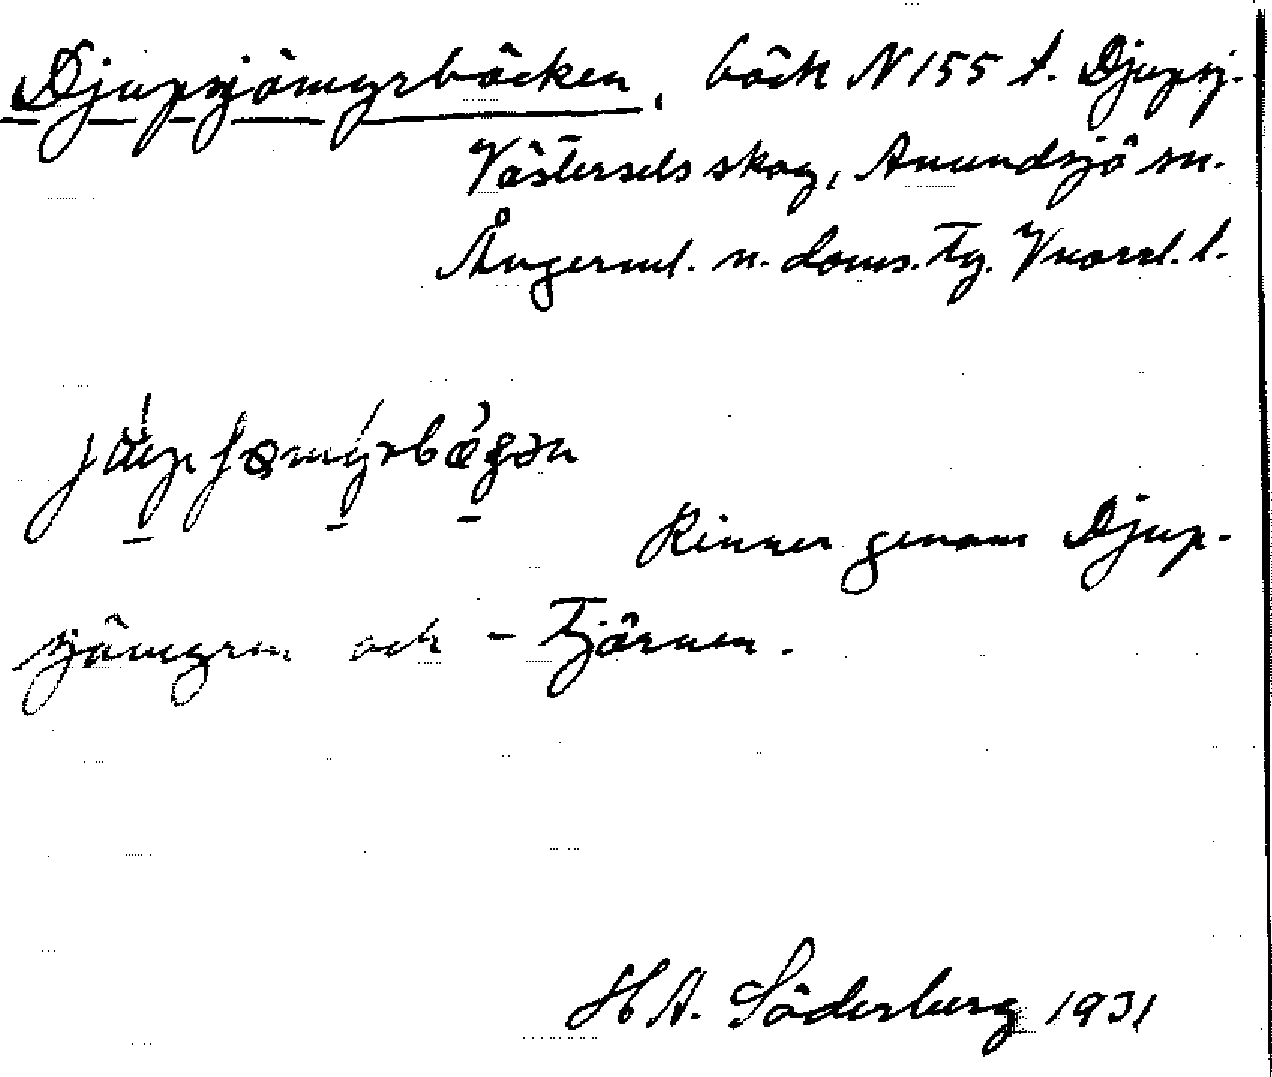 Djupsjömyrbäcken, bäck N 155 t. Djupsj.
Västersels skog, Anundsjö sn.
Ångerml. n. doms. Tg. Vnorrl. l.
Rinner genom Djup-
sjömyren och - Tjärnen.
H A. Söderberg 1931